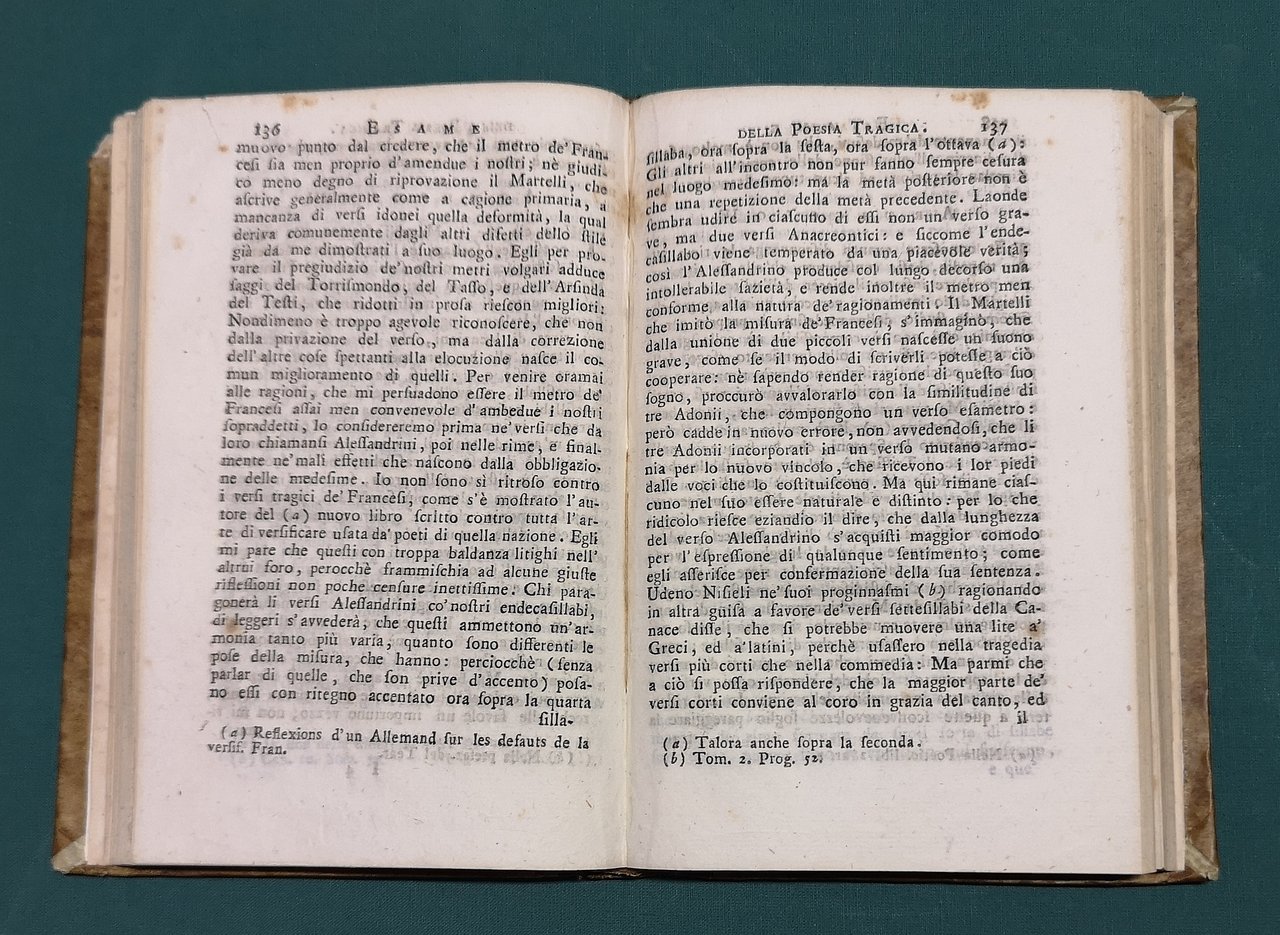 136 ESAME
muovo punto dal credere, che il metro de'Fran-
cesi sia men proprio d'amendue i nostri; nè giudi-
co meno degno di riprovazione il Martelli, che
ascrive generalmente come a cagione primaria, a
mancanza di versi idonei quella deformità, la qual
deriva comunemente dagli altri difetti dello stile
già da me dimostrati a suo luogo. Egli per pro-
vare il pregiudizio de'nostri metri volgari adduce
saggi del Torrismondo, del Tasso, e dell'Arsinda
del Testi, che ridotti in prosa riescon migliori:
Nondimeno è troppo agevole riconoscere, che non
dalla privazione del verso, ma dalla correzione
dell'altre cose spettanti alla elocuzione nasce il co-
mun miglioramento di quelli. Per venire oramai
alle ragioni, che mi persuadono essere il metro de'
Francesi assai men convenevole d'ambedue i nostri
sopraddetti, lo considereremo prima ne'versi che da
loro chiamansi Alessandrini, poi nelle rime, e final-
mente ne'mali effetti che nascono dalla obbligazio-
ne delle medesime. Io non sono sì ritroso contro
i versi tragici de'Francesi, come s'è mostrato l'au-
tore del (a) nuovo libro scritto contro tutta l'ar-
te di versificare usata da'poeti di quella nazione. Egli
mi pare che questi con troppa baldanza litighi nell'
altrui foro, perocchè frammischia ad alcune giuste
riflessioni non poche censure inettissime. Chi para-
gonerà li versi Alessandrini co'nostri endecasillabi,
di leggeri s'avvederà, che questi ammettono un'ar-
monia tanto più varia, quanto sono differenti le
pose della misura, che hanno: perciocchè (senza
parlar di quelle, che son prive d'accento) posa-
no essi con ritegno accentato ora sopra la quarta
silla-
(a) Reflexions d'un Allemand sur les defauts de la
versif. Fran.
DELLA POESIA TRAGICA. 137
sillaba, ora sopra la sesta, ora sopra l'ottava (a):
Gli altri all'incontro non pur fanno sempre cesura
nel luogo medesimo: ma la metà posteriore non è
che una repetizione della metà precedente. Laonde
sembra udire in ciascuno di essi non un verso gra-
ve, ma due versi Anacreontici: e siccome l'ende-
casillabo viene temperato da una piacevole verità;
così l'Alessandrino produce col lungo decorso una
intollerabile sazietà, e rende inoltre il metro men
conforme alla natura de'ragionamenti. Il Martelli
che imitò la misura de'Francesi, s'immaginò, che
dalla unione di due piccoli versi nascesse un suono
grave, come se il modo di scriverli potesse a ciò
cooperare: nè sapendo render ragione di questo suo
sogno, proccurò avvalorarlo con la similitudine di
tre Adonii, che compongono un verso esametro:
però cadde in nuovo errore, non avvedendosi, che li
tre Adonii incorporati in un verso mutano armo-
nia per lo nuovo vincolo, che ricevono i lor piedi
dalle voci che lo costituiscono. Ma qui rimane cias-
cuno nel suo essere naturale e distinto: per lo che
ridicolo riesce eziandio il dire, che dalla lunghezza
del verso Alessandrino s'acquisti maggior comodo
per l'espressione di qualunque sentimento; come
egli asserisce per confermazione della sua sentenza.
Udeno Nisieli ne'suoi proginnasmi (b) ragionando
in altra guisa a favore de'versi settesillabi della Ca-
nace disse, che si potrebbe muovere una lite a'
Greci, ed a'latini, perchè usassero nella tragedia
versi più corti che nella commedia: Ma parmi che
a ciò si possa rispondere, che la maggior parte de'
versi corti conviene al coro in grazia del canto, ed
il
(a) Talora anche sopra la seconda.
(b) Tom. 2. Prog. 52.